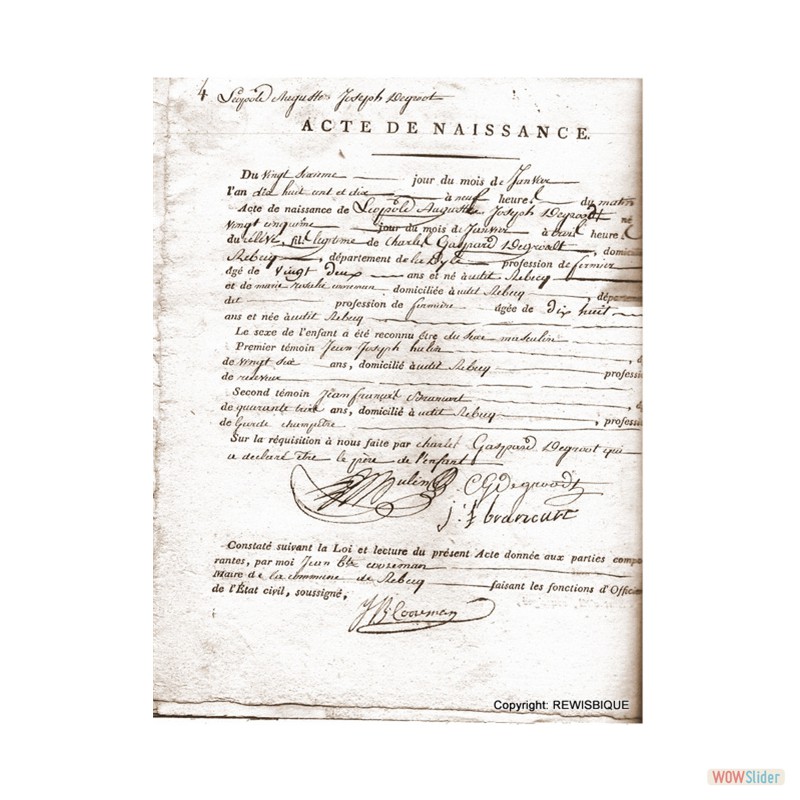 4 Leopold Auguste Joseph Degroot
ACTE DE NAISSANCE.
Du vingt sixieme jour du mois de Janvier
l'an dix huit cent et dix à neuf heure du matin
Acte de naissance de Leopold Auguste Joseph Degroodt né
vingt cinquième jour du mois de Janvier à heure
du fils legitime de Charles Gaspard Degroodt, domici
Rebecq, département de la Dyle profession de fermier
âgé de vingt deux ans et né audit Rebecq
et de marie domiciliée audit Rebecq départe
dit profession de fermière âgée de dix huit
ans et née audit Rebecq
Le sexe de l'enfant a été reconnu être du sexe masculin
Premier témoin Jean Joseph hulin
de vingt six ans, domicilié audit Rebecq professi
de
Second témoin Jean françois Brancart
de quarante trois ans, domicilié audit Rebecq professi
de Garde champètre
Sur la réquisition à nous faite par charles Gaspard Degroot qui
a declaré être le père de l'enfant
hulin C G degroodt
j: f brancart
Constaté suivant la Loi et lecture du présent Acte donnée aux parties compa
rantes, par moi Jean Bte cooreman
Maire de la commune de Rebecq faisant les fonctions d'Officier
de l'État civil, soussigné,
J B Cooreman
Copyright: REWISBIQUE
WOWSlider